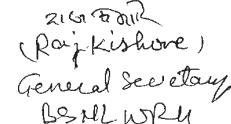 (Raj Kishore)
General Secretary
BSNL WRU